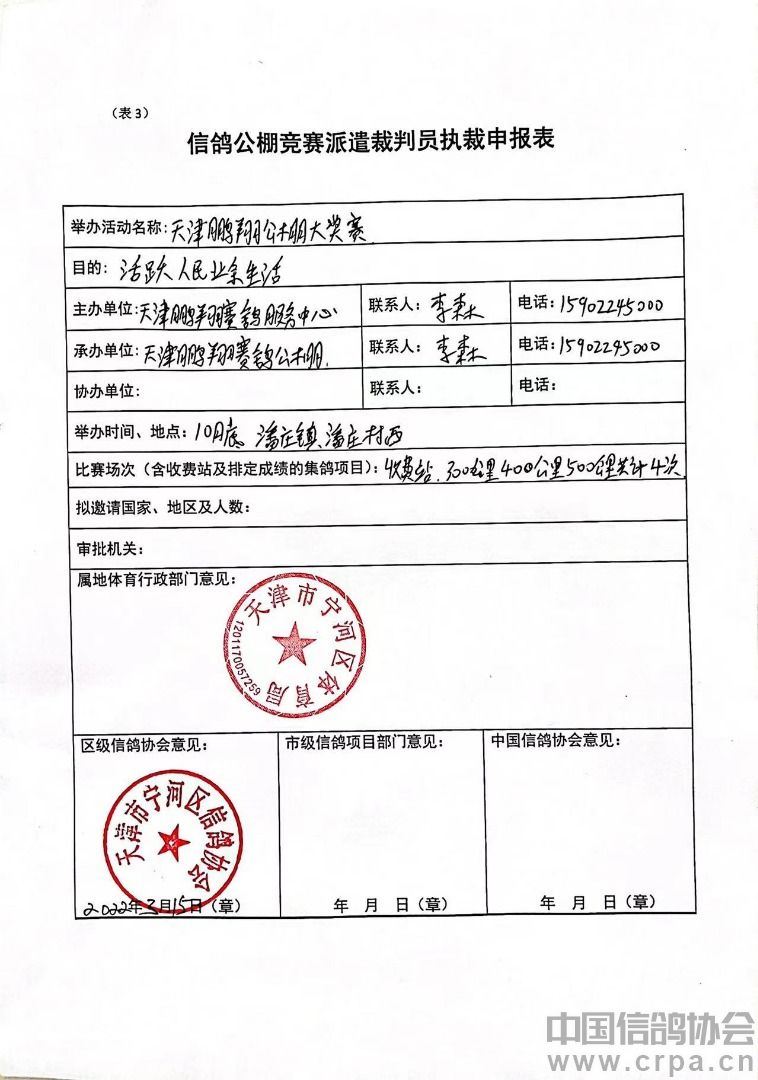 （表3）
信鸽公棚竞赛派遣裁判员执裁申报表
举办活动名称：天津鹏翔公棚大奖赛
目的：活跃人民业余生活
主办单位：天津鹏翔赛鸽服务中心 联系人：李森 电话：15902245000
承办单位：天津鹏翔赛鸽公棚. 联系人：李森 电话：15902245000
协办单位： 联系人： 电话：
举办时间、地点：10月底 潘庄镇潘庄村西
比赛场次（含收费站及排定成绩的集鸽项目）：收费站.300公里400公里500公里共计4次
拟邀请国家、地区及人数：
审批机关：
属地体育行政部门意见：
天津市宁河区体育局
1201170057259
区级信鸽协会意见： 市级信鸽项目部门意见： 中国信鸽协会意见：
天津市宁河区信鸽协会
2022年3月15日（章） 年 月 日（章） 年 月 日（章）
中国信鸽协会
www.crpa.cn